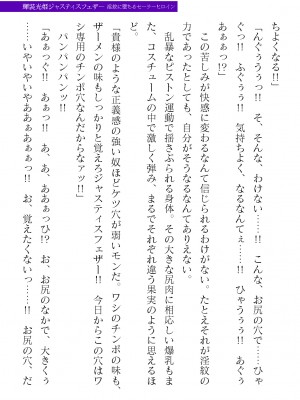 輝装光姫ジャスティスフェザー 淫紋に堕ちるモーターヒロイン
ちよくなる!!」
「んぐぅうぅっ!! そ、そんな、わけない……!! こんな、お尻の穴で……ひゃ
ぐっ!! ふぐぅぅ!! 気持ちよく、なるなんてぇ……!! ひゃうぅぅ!! あぐぅ
あぁっっ!?」
この苦しみが快感に変わるなんて信じられるわけがない。たとえそれが淫紋の
力であったとしても、自分がそうなるなんてありえない。
乱暴なピストン運動で揺さぶられる身体。その大きな尻肉に相応しい爆乳もま
た、コスチュームの中で激しく弾み、まるでそれぞれ違う果実のように思えるほ
どだ。
「貴様のような正義感の強い奴ほどケツ穴が弱いモンだ。ワシのチンポの味も、
ザーメンの味もしっかりと覚えろジャスティスフェザー!! 今日からこの穴はワ
シ専用のチンポ穴なんだからなァッ!!」
パンパンパンッ!!
「あぁっぐ!! あぁっ!! あ、あ、ああぁっひ!? お、お尻のなかで、大きくぅ
……いやいやいやああぁあぁぁっ!! お、覚えたくないっ……!! お尻の穴、だ